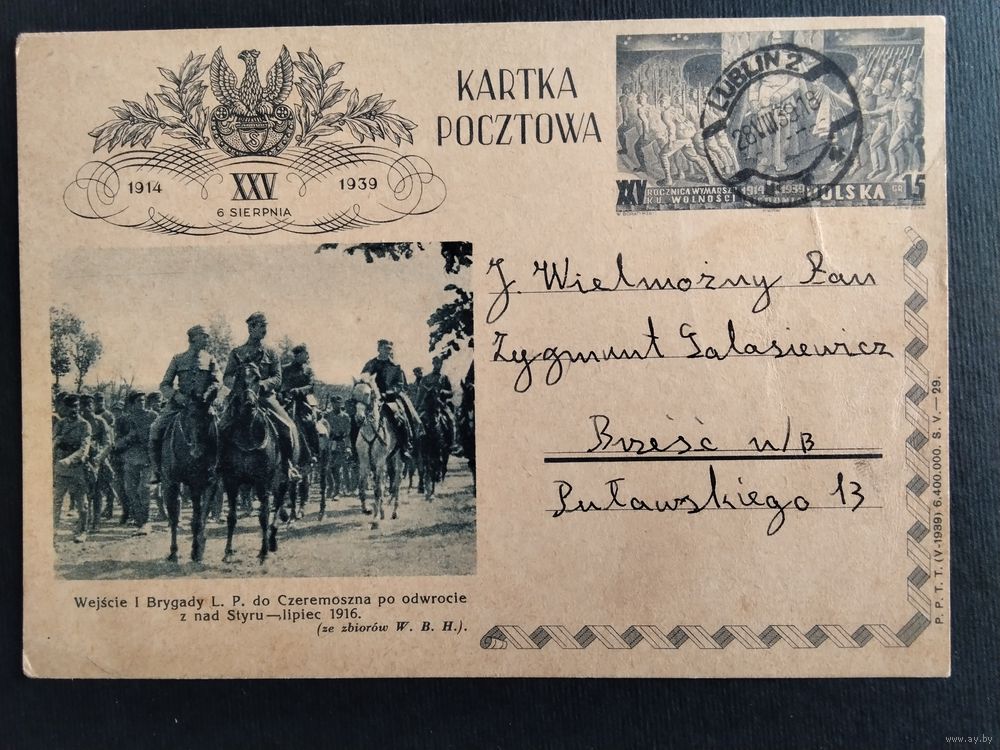 KARTKA
POCZTOWA
S
1914 XXV 1939
6 SIERPNIA
LUBLIN 2
28 VIII 39 18
XXV ROCZNICA WYMARSZU 1914 1939 POLSKA GR 15
KU WOLNOŚCI
J. Wielmożny Pan
Zygmunt Galasiewicz
Brześć n/B
Puławskiego 13
Wejście I Brygady L. P. do Czeremoszna po odwrocie
z nad Styru—lipiec 1916.
(ze zbiorów W. B. H.).
P. P. T. T. (V-1939) 6.400.000. S. V. — 29.
www.ay.by